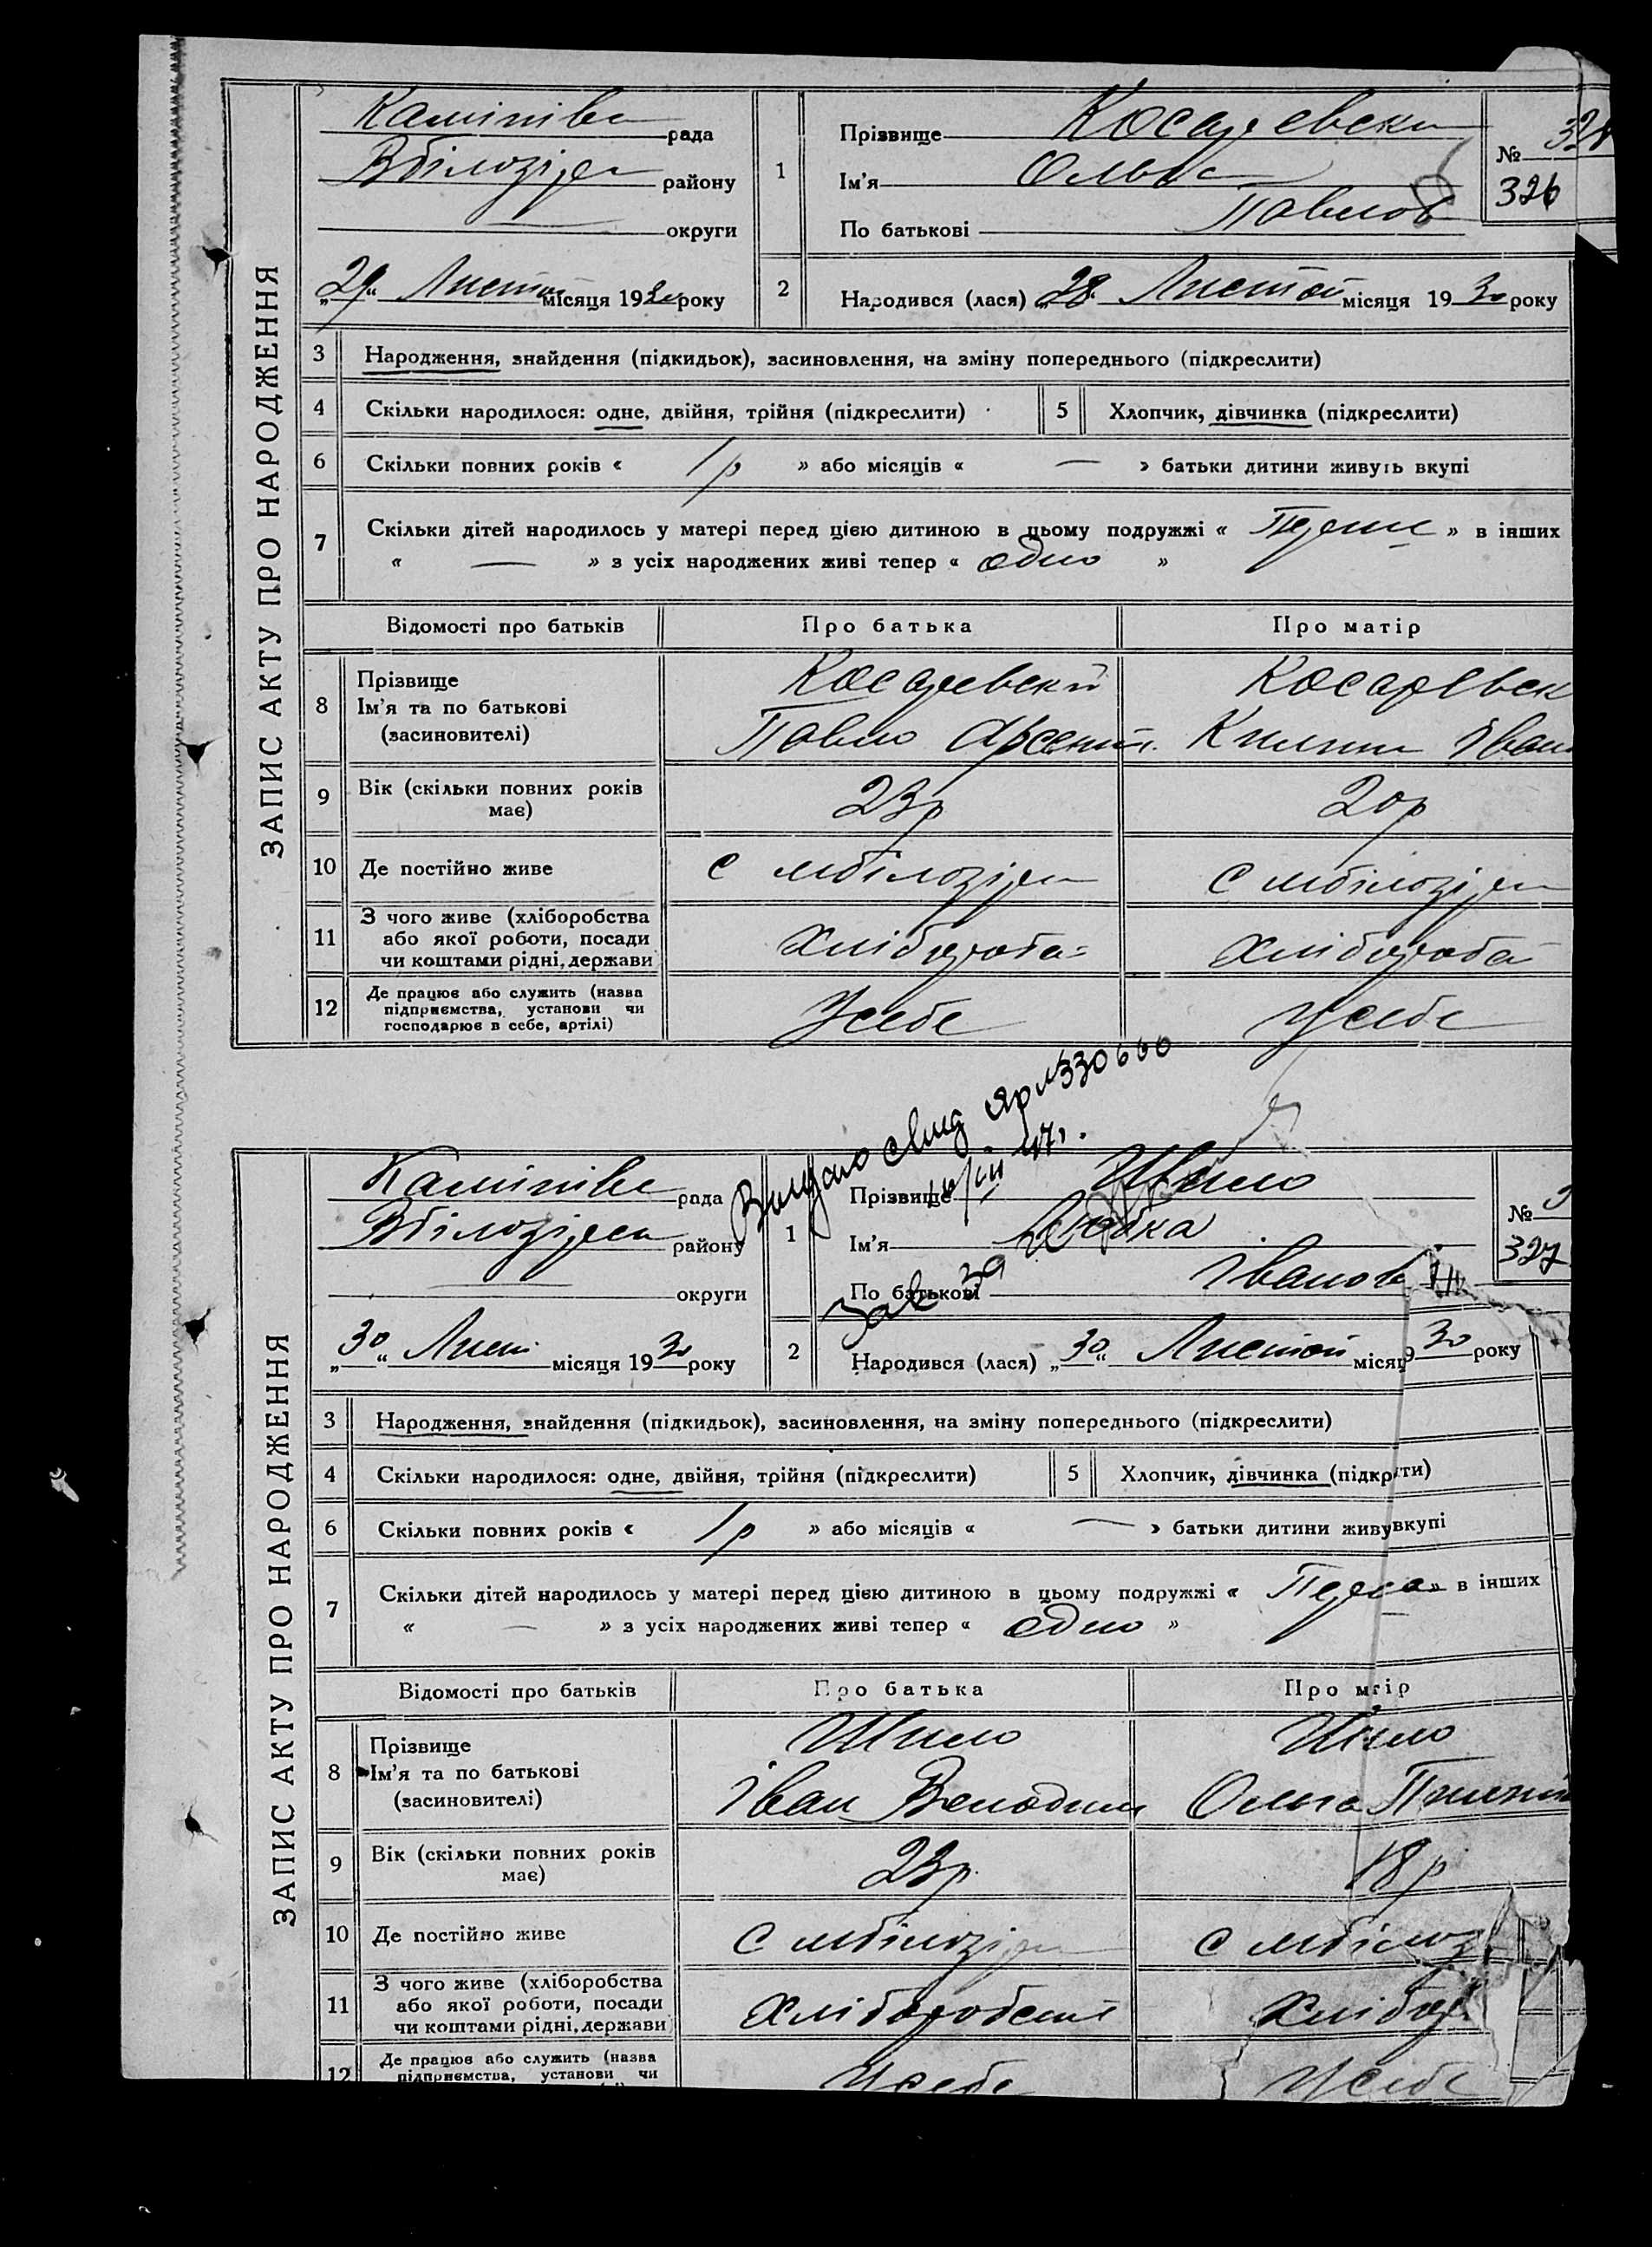 ЗАПИС АКТУ ПРО НАРОДЖЕННЯ
рада
Вбілозірка району
округи
„29“ Листоп місяця 1930 року
1
Прізвище Косаревски
Ім'я Ольга
По батькові Павлов
№
326
2
Народився (лася) „28“ Листоп місяця 1930 року
3
Народження, знайдення (підкидьок), засиновлення, на зміну попереднього (підкреслити)
4
Скільки народилося: одне, двійня, трійня (підкреслити)
5
Хлопчик, дівчинка (підкреслити)
6
Скільки повних років « 1р » або місяців « — » батьки дитини живуть вкупі
7
Скільки дітей народилось у матері перед цією дитиною в цьому подружжі « » в інших
« — » з усіх народжених живі тепер « одно »
Відомості про батьків
Про батька
Про матір
8
Прізвище
Ім'я та по батькові
(засиновителі)
Косаревский
Павло Арсенті.
Косаревск
Килина Іван
9
Вік (скільки повних років має)
23р
20р
10
Де постійно живе
С мбілозірка
С мбілозірка
11
З чого живе (хліборобства
або якої роботи, посади
чи коштами рідні, держави
Хлібороба
Хлібороба
12
Де працює або служить (назва
підприємства, установи чи
господарює в себе, артілі)
Усебе
Усебе
Видано свид ЯР №330660
ЗАПИС АКТУ ПРО НАРОДЖЕННЯ
рада
Вбілозірка району
округи
„30“ Лист місяця 1930 року
1
Прізвище Шило
Ім'я
По батькові Іванов
№
327
2
Народився (лася) „30“ Листоп місяц 930 року
3
Народження, знайдення (підкидьок), засиновлення, на зміну попереднього (підкреслити)
4
Скільки народилося: одне, двійня, трійня (підкреслити)
5
Хлопчик, дівчинка (підкр ти)
6
Скільки повних років « 1р » або місяців « — » батьки дитини живу вкупі
7
Скільки дітей народилось у матері перед цією дитиною в цьому подружжі « » в інших
« — » з усіх народжених живі тепер « одно »
Відомості про батьків
Про батька
Про м тір
8
Прізвище
Ім'я та по батькові
(засиновителі)
Шило
Іван Володим
Шило
Ольга
9
Вік (скільки повних років має)
23р.
18р
10
Де постійно живе
С мбілозірка
С мбілоз
11
З чого живе (хліборобства
або якої роботи, посади
чи коштами рідні, держави
Хлібор
12
Де працює або служить (назва
підприємства, установи чи
Усебе
Усебе